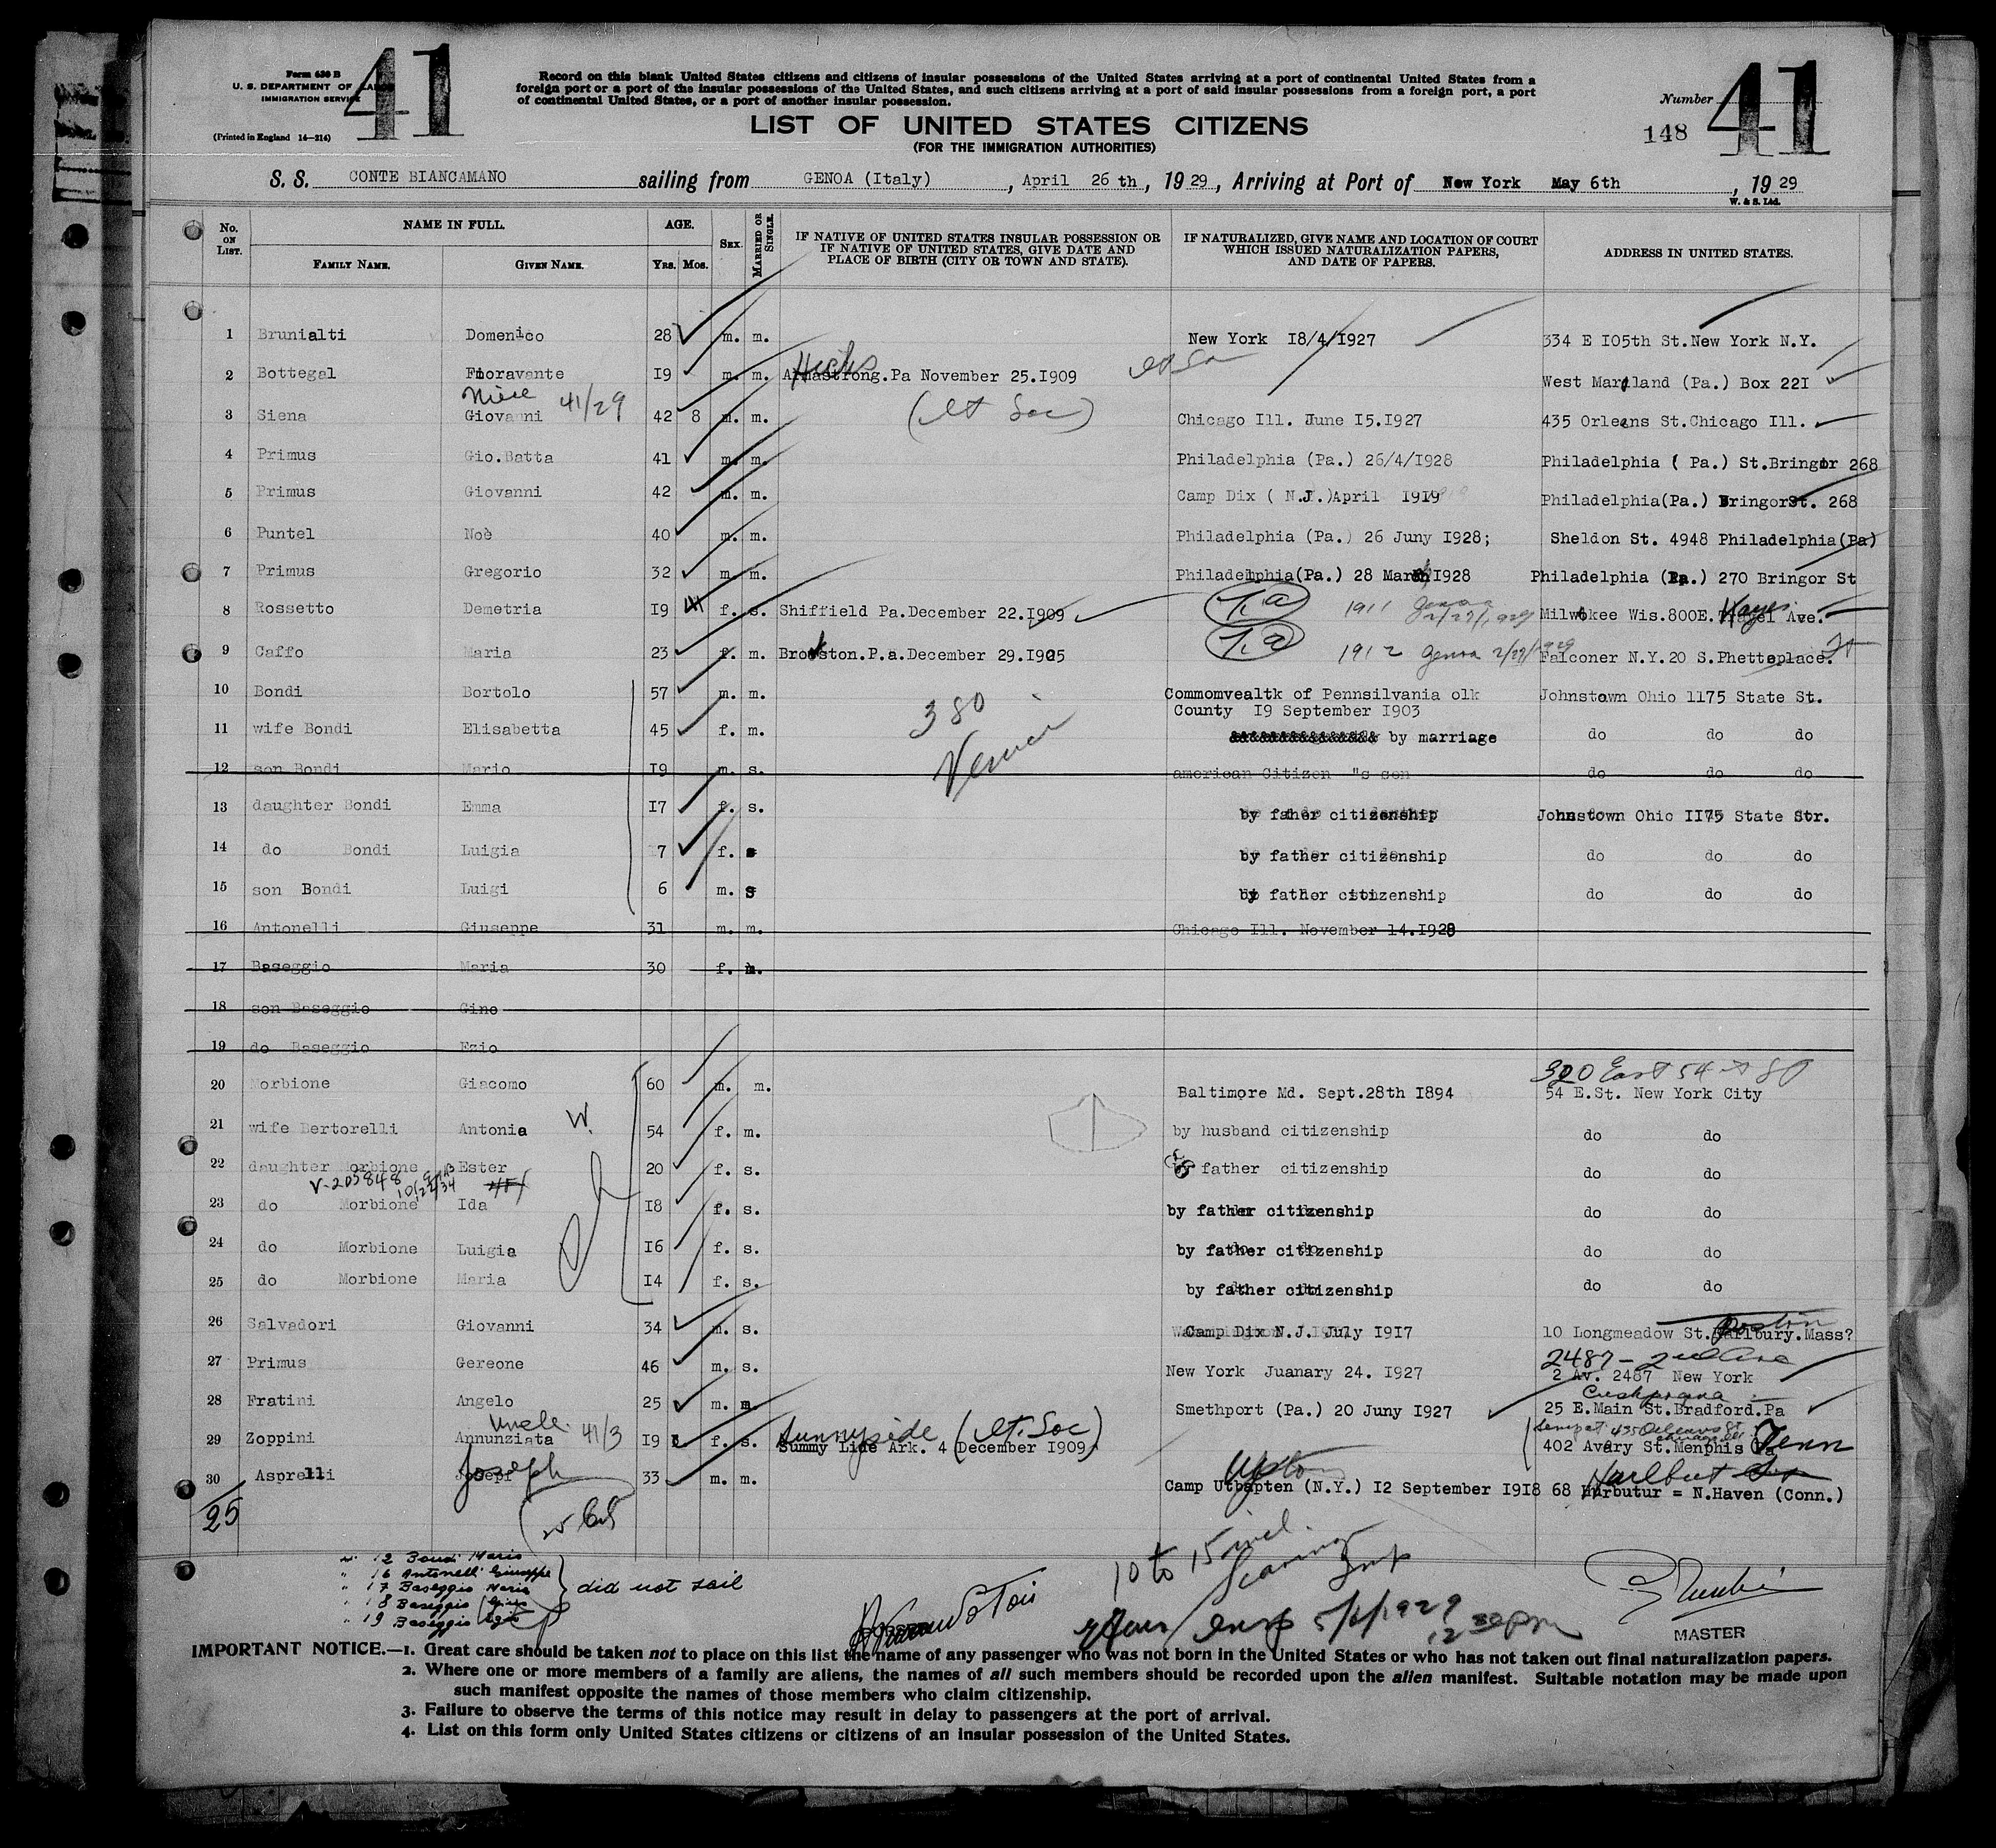 41
41
Form 630 B
U. S. DEPARTMENT OF LABOR
IMMIGRATION SERVICE
(Printed in England 14—214)
Record on this blank United States citizens and citizens of insular possessions of the United States arriving at a port of continental United States from a
foreign port or a port of the insular possessions of the United States, and such citizens arriving at a port of said insular possessions from a foreign port, a port
of continental United States, or a port of another insular possession.
Number
148
LIST OF UNITED STATES CITIZENS
(FOR THE IMMIGRATION AUTHORITIES)
S. S. CONTE BIANCAMANO sailing from GENOA (Italy), April 26 th, 19 29, Arriving at Port of New York May 6th, 19 29
W. & S. Ltd.
No. ON LIST. NAME IN FULL. AGE. SEX. MARRIED OR SINGLE. IF NATIVE OF UNITED STATES INSULAR POSSESSION OR IF NATIVE OF UNITED STATES, GIVE DATE AND PLACE OF BIRTH (CITY OR TOWN AND STATE). IF NATURALIZED, GIVE NAME AND LOCATION OF COURT WHICH ISSUED NATURALIZATION PAPERS, AND DATE OF PAPERS. ADDRESS IN UNITED STATES.
FAMILY NAME. GIVEN NAME. YRS. MOS.
1 Brunialti Domenico 28 m. m. New York I8/4/I927 334 E I05th St.New York N.Y.
2 Bottegal Fioravante I9 m. m. Hicks Armastrong.Pa November 25.I909 West Martland (Pa.) Box 22I
Niece 41/29
3 Siena Giovanni 42 8 m. m. (It Soc) Chicago Ill. June I5.I927 435 Orleans St.Chicago Ill.
4 Primus Gio.Batta 41 m. m. Philadelphia (Pa.) 26/4/I928 Philadelphia ( Pa.) St.Bringor 268
5 Primus Giovanni 42 m. m. Camp Dix ( N.J.)April I9I9 Philadelphia(Pa.) BringorSt. 268
6 Puntel Noè 40 m. m. Philadelphia (Pa.) 26 Juny I928; Sheldon St. 4948 Philadelphia(Pa)
7 Primus Gregorio 32 m. m. Philadelphia(Pa.) 28 March I928 Philadelphia (Pa.) 270 Bringor St
8 Rossetto Demetria I9 f. s. Shiffield Pa.December 22.I909 1911 Genoa 2/27/1929 Milwokee Wis.800E. Hayes Ave.
9 Caffo Maria 23 f. m. Brockston.P.a.December 29.I905 1912 Genoa 2/27/1929 Falconer N.Y.20 S.Phetteplace. St
10 Bondi Bortolo 57 m. m. Commomvealtk of Pennsilvania olk Johnstown Ohio 1175 State St.
County I9 September I903
380
11 wife Bondi Elisabetta 45 f. m. by marriage do do do
12 son Bondi Mario I9 m. s. american Citizen "s son do do do
13 daughter Bondi Emma I7 f. s. by faher citisenship Johnstown Ohio II75 State Str.
14 do Bondi Luigia 7 f. s by father citizenship do do do
15 son Bondi Luigi 6 m. s by father citizenship do do do
16 Antonelli Giuseppe 31 m. m. Chicago Ill. November 14.I928
17 Baseggio Maria 30 f. m.
18 son Baseggio Gino
19 do Baseggio Ezio
320 East 54 St
20 Morbione Giacomo 60 m. m. Baltimore Md. Sept.28th I894 54 E.St. New York City
21 wife Bertorelli Antonia W. 54 f. m. by husband citizenship do do
22 daughter Morbione Ester 20 f. s. father citizenship do do
V-203848
23 do Morbione Ida I8 f. s. by father citizenship do do
24 do Morbione Luigia I6 f. s. by father citizenship do do
25 do Morbione Maria I4 f. s. by father citizenship do do
26 Salvadori Giovanni 34 m. s. Camp Dix N.J. July I9I7 10 Longmeadow St. Boston Mass?
2487 - 2nd Ave
27 Primus Gereone 46 m. s. New York Juanary 24. I927 2 Av. 2487 New York
28 Fratini Angelo 25 m. m. Smethport (Pa.) 20 Juny I927 25 E.Main St.Bradford.Pa
Uncle 41/3
Sunnyside (It. Soc)
29 Zoppini Annunziata I9 f. s. Summy Lide Ark. 4 December I909 402 Avery St.Menphis Tenn
30 Asprelli Joseph 33 m. m. Upton Camp Utbapten (N.Y.) I2 September I9I8 68 Hurlbut St Harbutur = N.Haven (Conn.)
25
12 Bondi Mario
16 Antonelli Giuseppe
17 Baseggio Maria
18 Baseggio Gino
19 Baseggio Ezio
did not sail
10 to 15 incl.
5/6/1929
MASTER
IMPORTANT NOTICE.—1. Great care should be taken not to place on this list the name of any passenger who was not born in the United States or who has not taken out final naturalization papers.
2. Where one or more members of a family are aliens, the names of all such members should be recorded upon the alien manifest. Suitable notation may be made upon
such manifest opposite the names of those members who claim citizenship.
3. Failure to observe the terms of this notice may result in delay to passengers at the port of arrival.
4. List on this form only United States citizens or citizens of an insular possession of the United States.